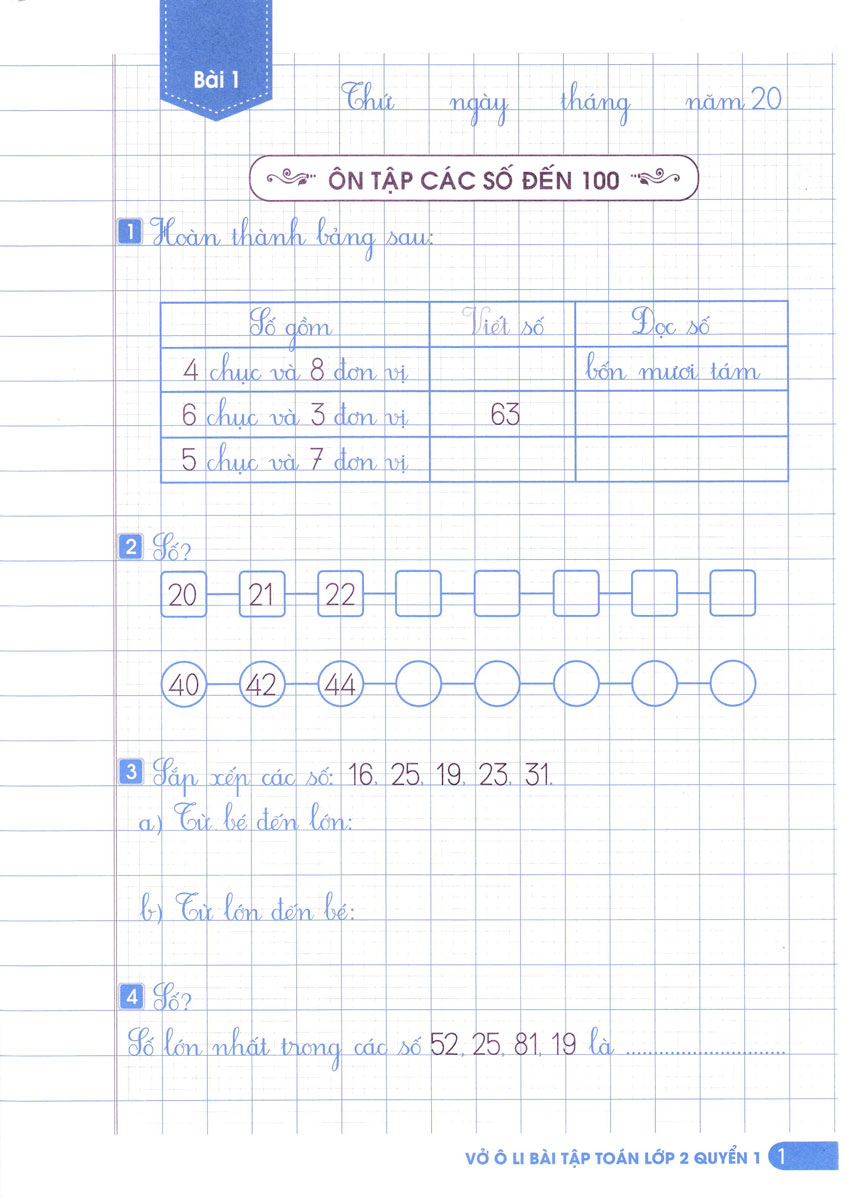 Bài 1
Thứ ngày tháng năm 20
ÔN TẬP CÁC SỐ ĐẾN 100
1 Hoàn thành bảng sau:
Số gồm Viết số Đọc số
4 chục và 8 đơn vị bốn mươi tám
6 chục và 3 đơn vị 63
5 chục và 7 đơn vị
2 Số?
20 21 22
40 42 44
3 Sắp xếp các số: 16, 25, 19, 23, 31.
a) Từ bé đến lớn:
b) Từ lớn đến bé:
4 Số?
Số lớn nhất trong các số 52, 25, 81, 19 là ..............................
VỞ Ô LI BÀI TẬP TOÁN LỚP 2 QUYỂN 1 1